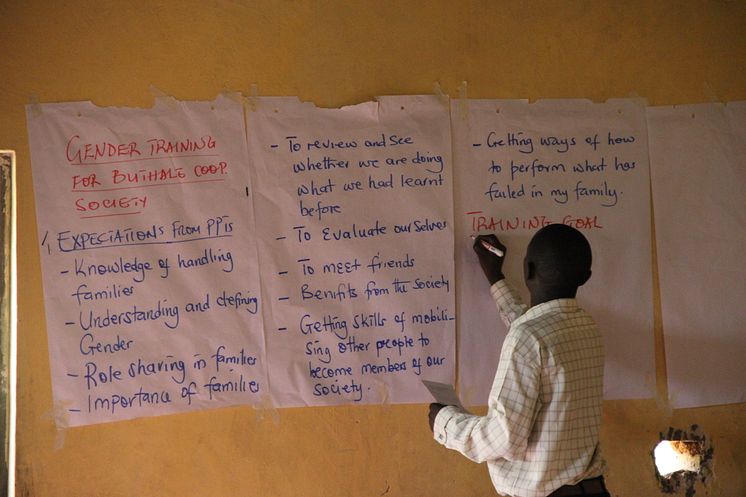 GENDER TRAINING
FOR BUTHALE COOP.
SOCIETY
1, EXPECTATIONS FROM PPTS
- Knowledge of handling
families
- Understanding and defining
Gender
- Role sharing in families
- Importance of families
- To review and see
whether we are doing
what we had learnt
before
- To Evaluate ourselves
- To meet friends
- Benifits from the Society
- Getting skills of mobili-
sing other people to
become members of our
society.
- Getting ways of how
to perform what has
failed in my family.
TRAINING GOAL